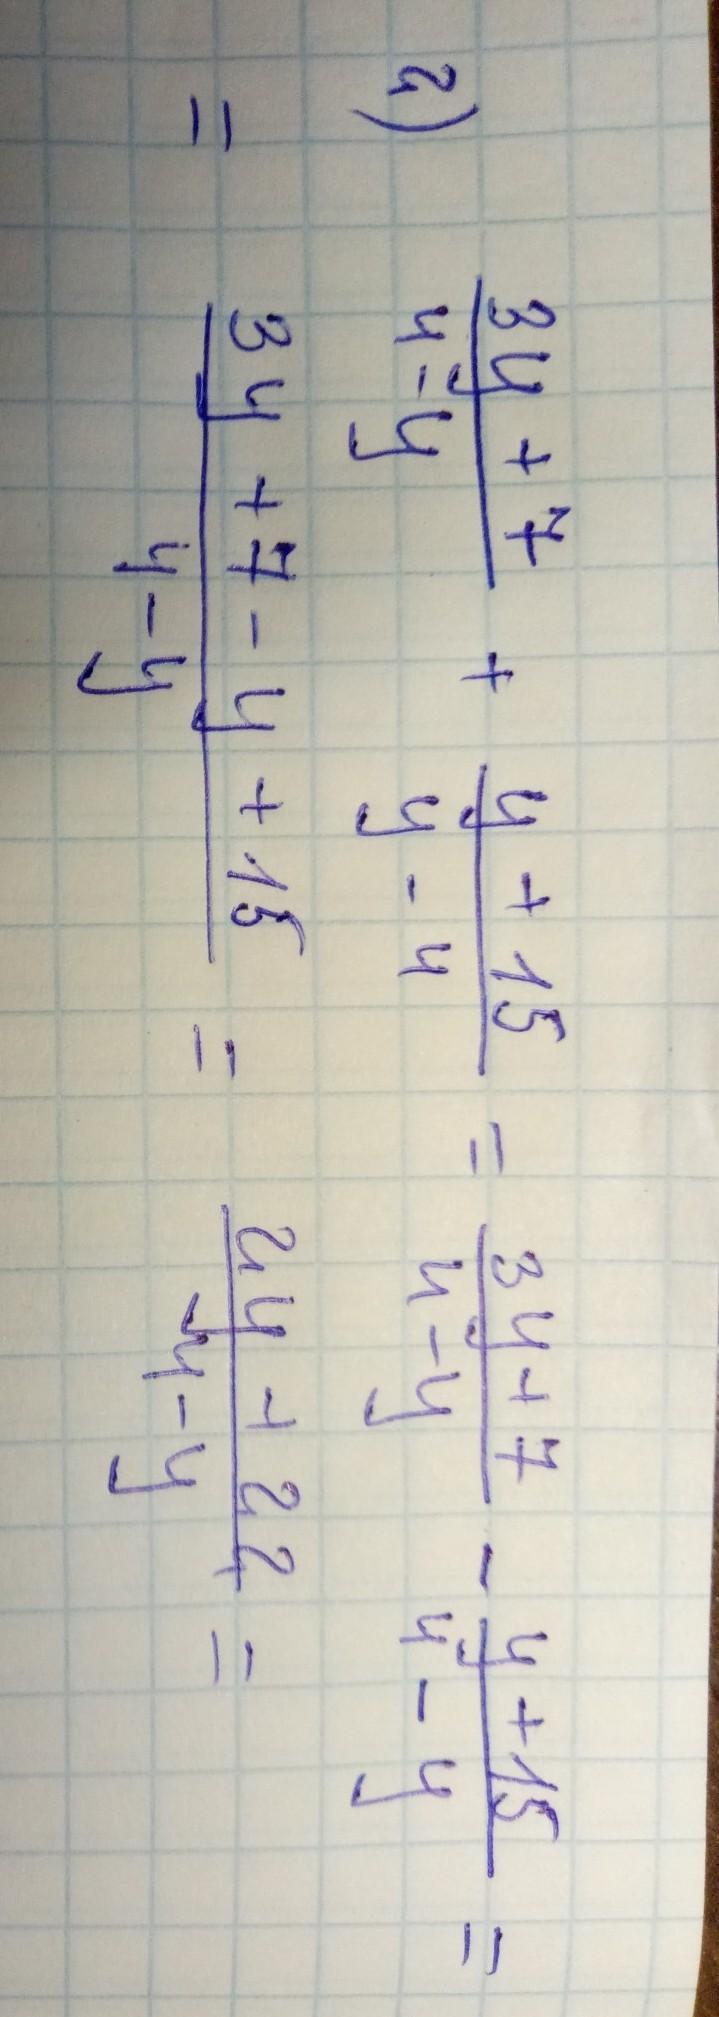 2) (3y + 7)/(4 - y) + (y + 15)/(y - 4) = (3y + 7)/(4 - y) - (y + 15)/(4 - y) =
= (3y + 7 - y + 15)/(4 - y) = (2y + 22)/(4 - y) =